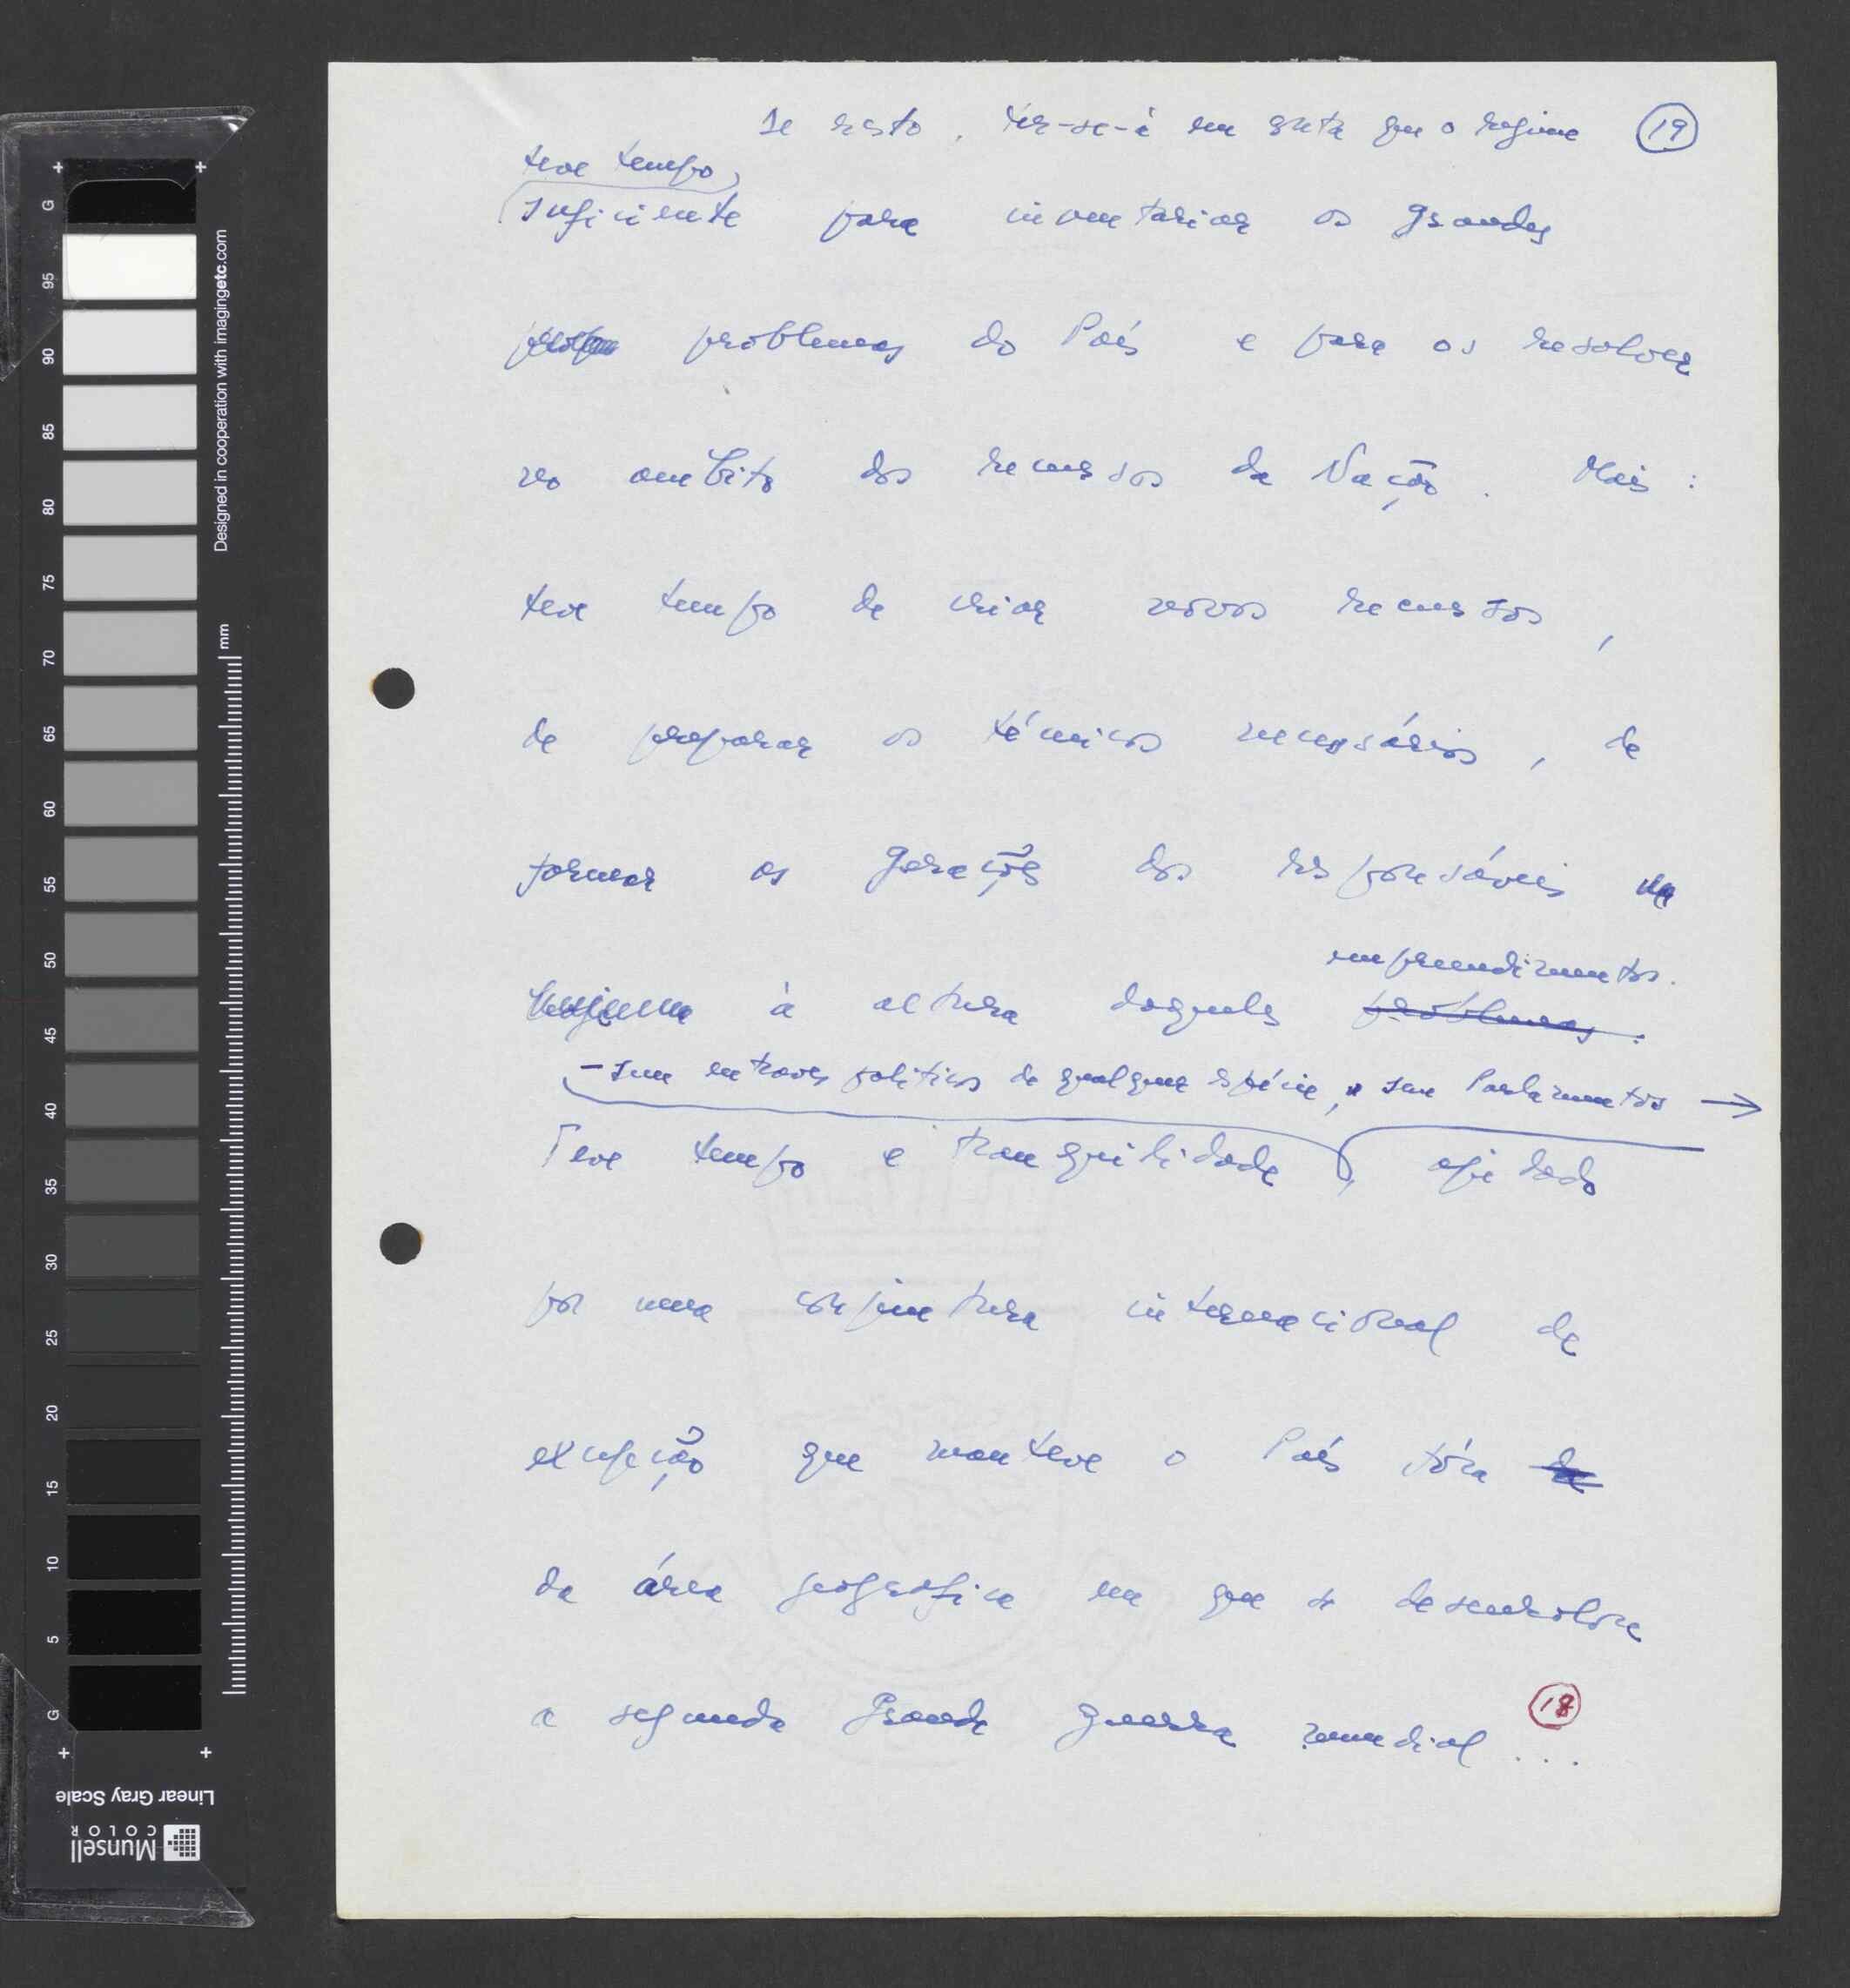 De resto, ter-se-á em conta que o regime
19
teve tempo
suficiente para inventariar os grandes
problemas do País e para os resolver
no ambito dos recursos da Nação. Mais:
teve tempo de criar novos recursos,
de preparar os técnicos necessários, de
formar as gerações dos responsáveis
empreendimentos.
à altura daqueles problemas.
- sem entraves politicos de qualquer espécie, sem Parlamentos →
Teve tempo e tranquilidade, ajudado
por uma conjuntura internacional de
excepção que manteve o País fóra de
da área geografica em que se desenrolou
a segunda Grande guerra mundial...
18
G
95
90
85
80
75
70
65
60
55
50
45
40
35
30
25
20
15
10
5
G
Designed in cooperation with imagingetc.com
mm
Linear Gray Scale
Munsell
COLOR